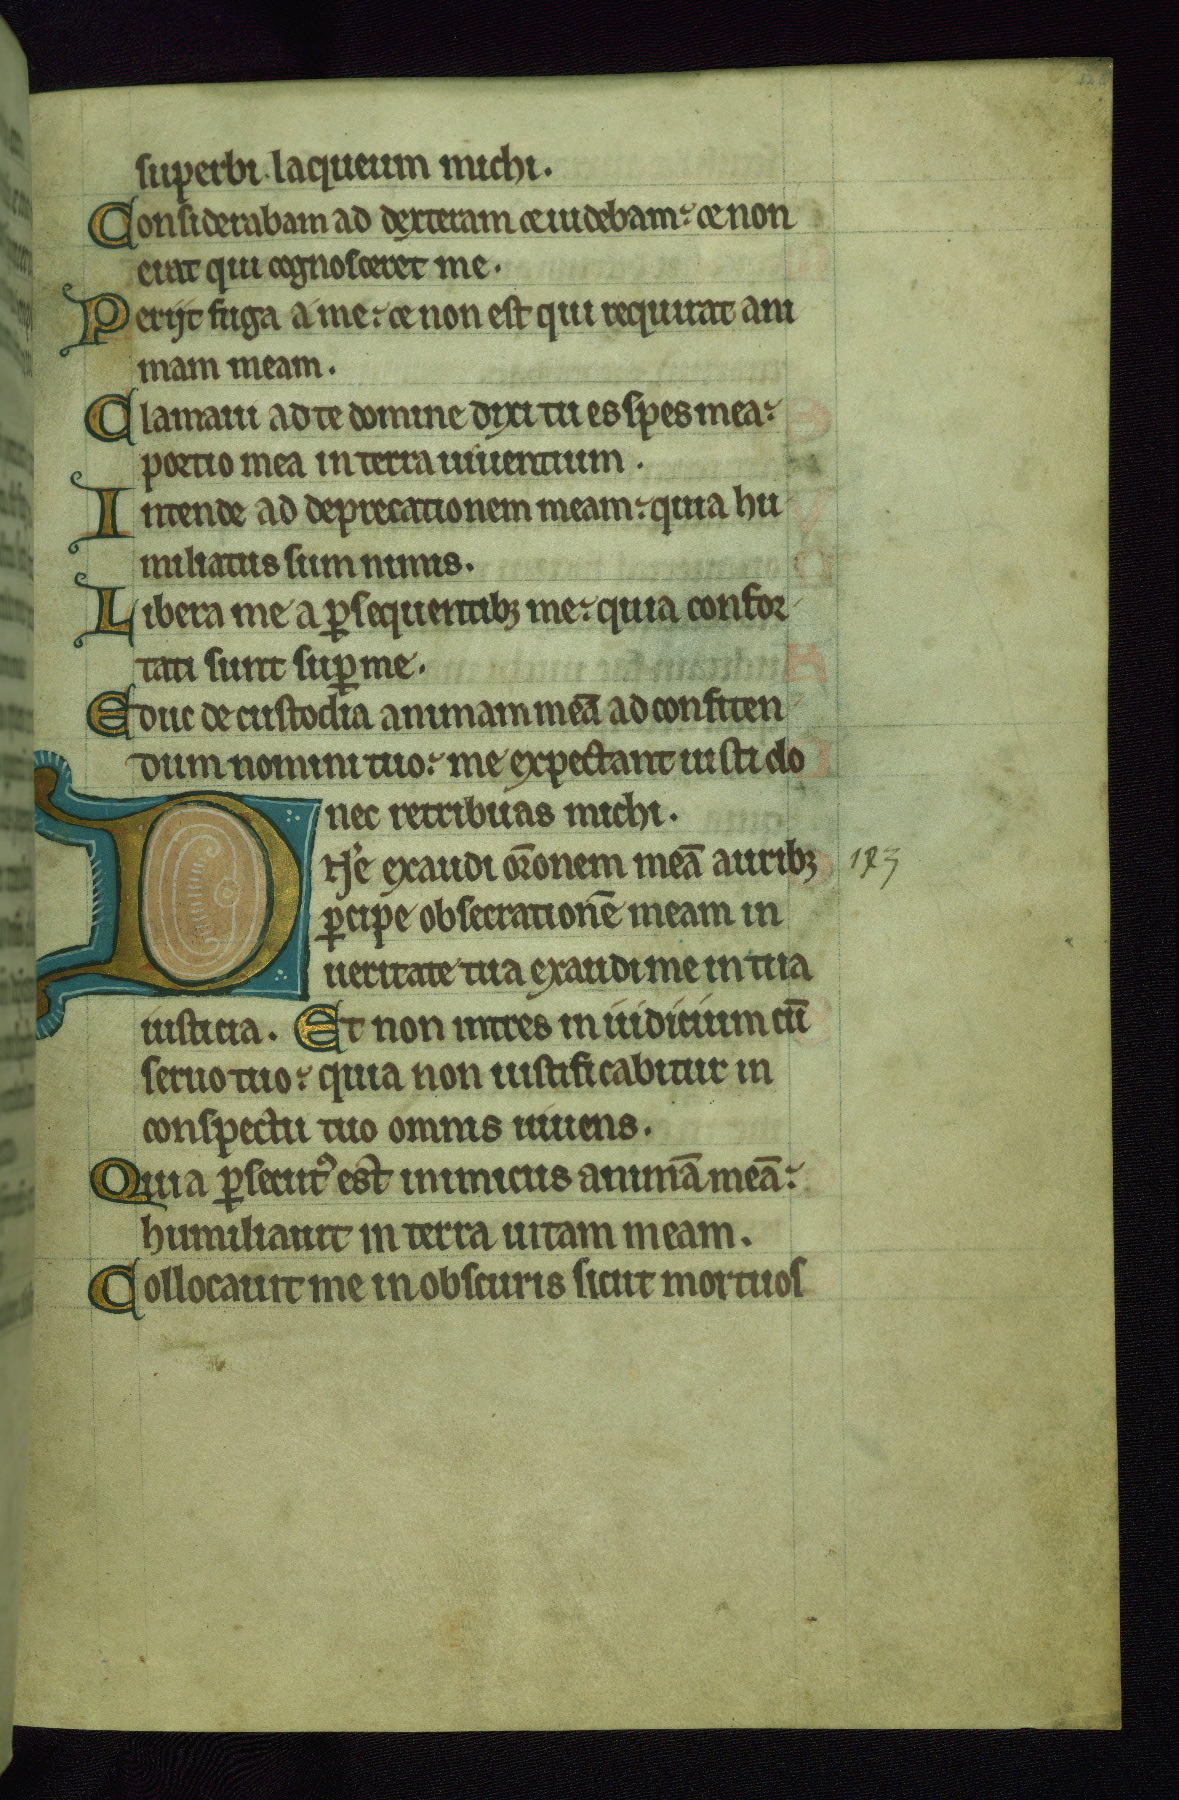 superbi laqueum michi.
Considerabam ad dexteram et uidebam: et non
erat qui cognosceret me.
Perijt fuga a me: et non est qui requirat ani
mam meam.
Clamaui ad te domine dixi tu es spes mea:
portio mea in terra uiuentium.
Intende ad deprecationem meam: quia hu
miliatus sum nimis.
Libera me a p̱sequentibꝫ me: quia confor
tati sunt sup̱ me.
Educ de custodia animam meā ad confiten
dum nomini tuo: me expectant iusti do
nec retribuas michi.
Dn̄e exaudi or̄onem meā auribꝫ 143
p̱cipe obsecrationē meam in
ueritate tua exaudi me in tua
iusticia. Et non intres in iudicium cū
seruo tuo: quia non iustificabitur in
conspectu tuo omnis uiuens.
Quia p̱secut᾿ est inimicus animā meā:
humiliauit in terra uitam meam.
Collocauit me in obscuris sicut mortuos